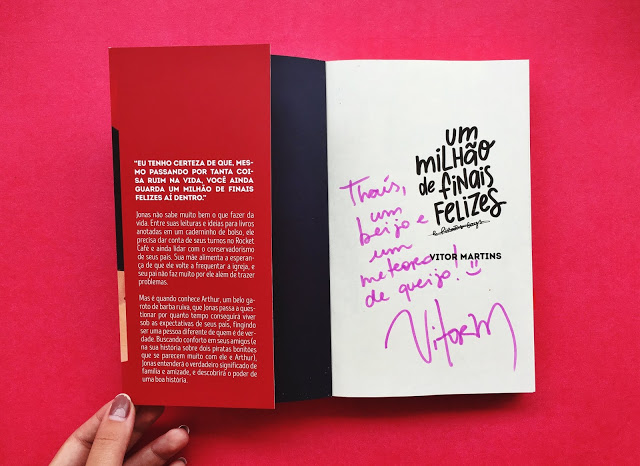 “EU TENHO CERTEZA DE QUE, MES-
MO PASSANDO POR TANTA COI-
SA RUIM NA VIDA, VOCÊ AINDA
GUARDA UM MILHÃO DE FINAIS
FELIZES AÍ DENTRO.”
Jonas não sabe muito bem o que fazer da
vida. Entre suas leituras e ideias para livros
anotadas em um caderninho de bolso, ele
precisa dar conta de seus turnos no Rocket
Café e ainda lidar com o conservadorismo
de seus pais. Sua mãe alimenta a esperan-
ça de que ele volte a frequentar a igreja, e
seu pai não faz muito por ele além de trazer
problemas.
Mas é quando conhece Arthur, um belo ga-
roto de barba ruiva, que Jonas passa a ques-
tionar por quanto tempo conseguirá viver
sob as expectativas de seus pais, fingindo
ser uma pessoa diferente de quem é de ver-
dade. Buscando conforto em seus amigos (e
na sua história sobre dois piratas bonitões
que se parecem muito com ele e Arthur),
Jonas entenderá o verdadeiro significado de
família e amizade, e descobrirá o poder de
uma boa história.
um
milhão
de finais
FELIZES
VITOR MARTINS
Thaís,
um
beijo e
um
meteoro
de queijo! :)
Vitor M